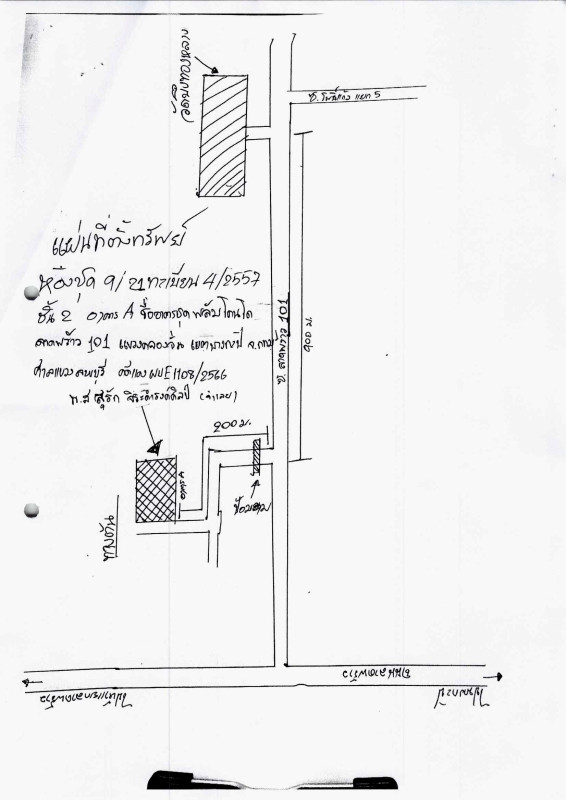 วัดบึงทองหลาง
ซ. โพธิ์แก้ว แยก 5
แผนที่ตั้งทรัพย์
ห้องชุด 9/21 ทะเบียน 4/2557
ชั้น 2 อาคาร A ชื่ออาคารชุด พลัมคอนโด
ลาดพร้าว 101 แขวงคลองจั่น เขตบางกะปิ จ.กทม
ศาลแขวงลพบุรี คดีแดง ผบE1108/2566
น.ส สุรัก (จำเลย)
ซ. ลาดพร้าว 101
900 ม.
200 ม.
อาคาร A
ป้อมยาม
ทางตัน
ถนนลาดพร้าว
ไปบางกะปิ